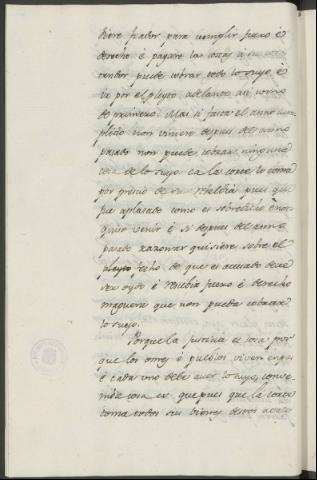 diere fiador para cumplir fuero é
derecho é pagare las costas á su con-
tendor puede cobrar todo lo suyo é
ir por el pleyto adelante asi como
de primero. Mas si fasta el anno cum-
plido non viniere despues del anno
pasado non puede cobrar ninguna
cosa de lo suyo ca la corte lo toma
por precio de su rebeldia pues que
fue aplasado como es sobredicho é non
quiso venir é si despues del anno
pasado razonar quisiere sobre el
pleyto fecho de que es acusado deve
seer oydo é reciba fuero é derecho
maguera que non pueda cobrar
lo suyo.
Porque la justicia es cosa por
que los omes é pueblos viven en paz
é cada uno debe aver lo suyo, conve-
nible cosa es que pues que la corte
toma todos sus bienes destos